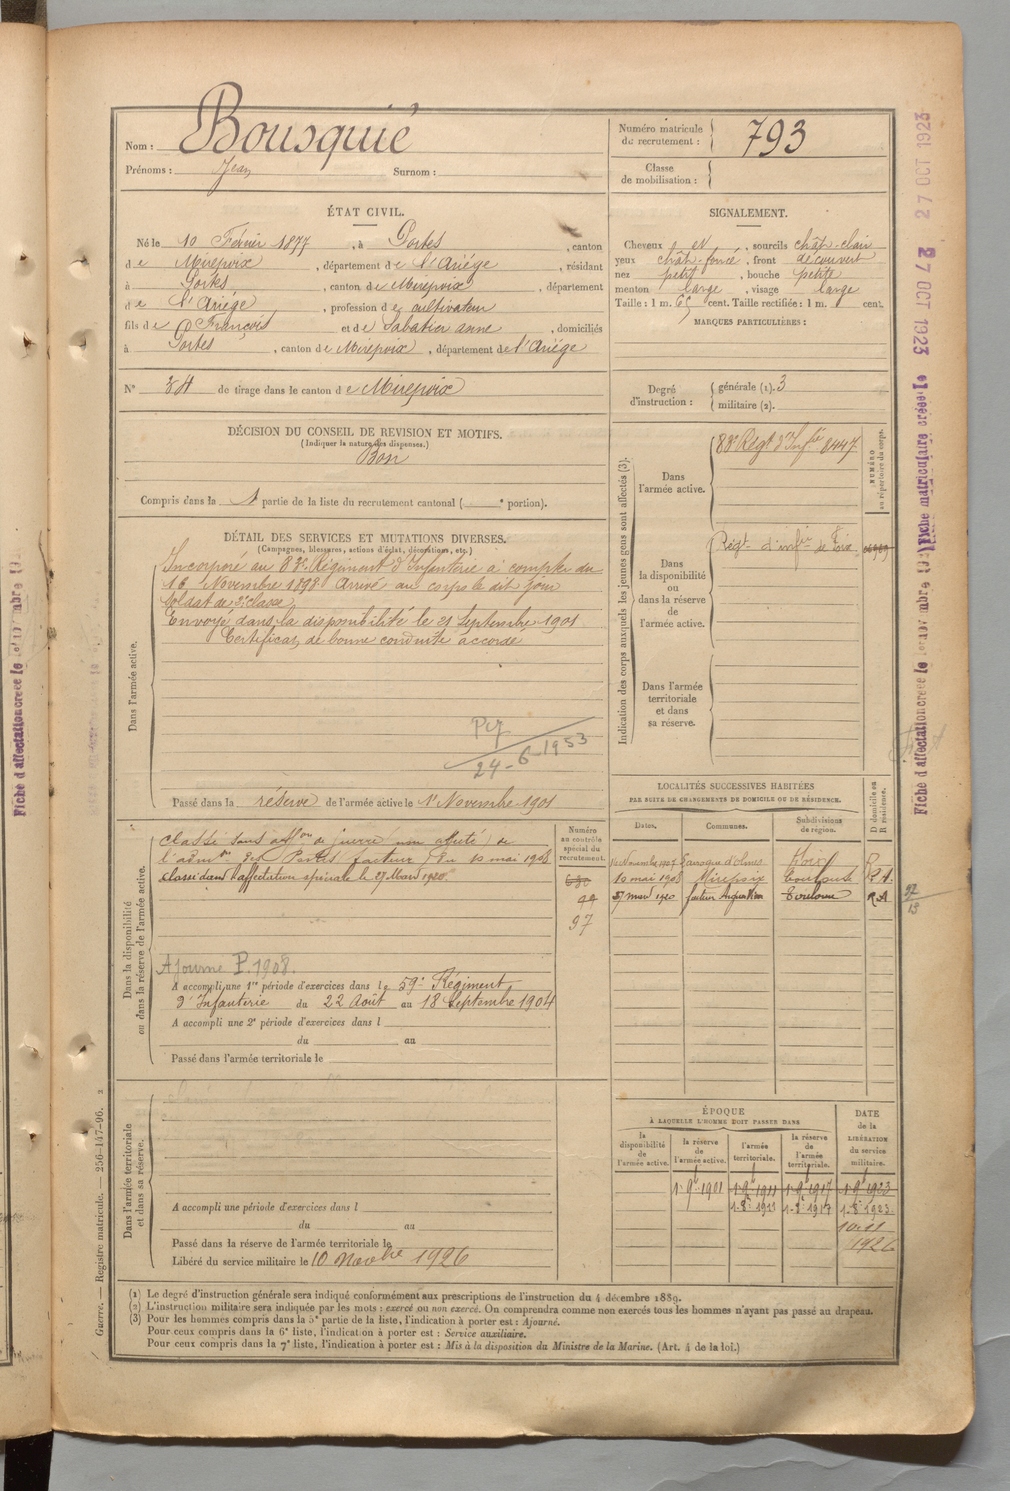 Nom : Bousquié
Prénoms : Jean Surnom :
Numéro matricule du recrutement : 793
Classe de mobilisation :
ÉTAT CIVIL.
Né le 10 Février 1877, à Portes, canton
de Mirepoix, département de l'Ariége, résidant
à Portes, canton de Mirepoix, département
de l'Ariége, profession de cultivateur
fils de François et de Sabatier anne, domiciliés
à Portes, canton de Mirepoix, département de l'Ariége
N° 34 de tirage dans le canton de Mirepoix
SIGNALEMENT.
Cheveux et, sourcils chât-clair
yeux chât-foncé, front découvert
nez petit, bouche petite
menton large, visage large
Taille : 1 m. 65 cent. Taille rectifiée : 1 m. cent.
MARQUES PARTICULIÈRES :
Degré d'instruction : générale (1). 3
militaire (2).
DÉCISION DU CONSEIL DE REVISION ET MOTIFS.
(Indiquer la nature des dispenses.)
Bon
Compris dans la 1 partie de la liste du recrutement cantonal ( e portion).
DÉTAIL DES SERVICES ET MUTATIONS DIVERSES.
(Campagnes, blessures, actions d'éclat, décorations, etc.)
Dans l'armée active.
Incorporé au 83e Régiment d'Infanterie à compter du
16 Novembre 1898 Arrivé au corps le dit jour
Soldat de 2e classe
Envoyé dans la disponibilité le 21 Septembre 1901
Certificat de bonne conduite accordé
24-6-1953
Passé dans la réserve de l'armée active le 1er Novembre 1901
Indication des corps auxquels les jeunes gens sont affectés (3).
Dans l'armée active.
83e Regt d'Infie 8447
NUMÉRO au répertoire du corps.
Dans la disponibilité ou dans la réserve de l'armée active.
Régt d'infie de Foix
Dans l'armée territoriale et dans sa réserve.
Dans la disponibilité ou dans la réserve de l'armée active.
Classé sans affon de guerre (non affecté) de
l'admon des Postes facteur) du 10 mai 1908
classé dans l'affectation spéciale le 27 Mars 1920
Numéro au contrôle spécial du recrutement.
99
97
Ajourné P. 1908.
A accompli une 1re période d'exercices dans le 59e Régiment
d'Infanterie du 22 Août au 18 Septembre 1904
A accompli une 2e période d'exercices dans l
du au
Passé dans l'armée territoriale le
LOCALITÉS SUCCESSIVES HABITÉES
PAR SUITE DE CHANGEMENTS DE DOMICILE OU DE RÉSIDENCE.
Dates. Communes. Subdivisions de région. D domicile ou R résidence.
Novembre 1907 Laroque d'olmes Foix R
10 mai 1908 Mirepoix Toulouse R.A.
27 mars 1920 facteur Toulouse R.A
97
13
Dans l'armée territoriale et dans sa réserve.
A accompli une période d'exercices dans l
du au
Passé dans la réserve de l'armée territoriale le
Libéré du service militaire le 10 Novbre 1926
ÉPOQUE
À LAQUELLE L'HOMME DOIT PASSER DANS
la disponibilité de l'armée active.
la réserve de l'armée active.
l'armée territoriale.
la réserve de l'armée territoriale.
DATE de la LIBÉRATION du service militaire.
1er 9bre 1901 1er 9bre 1911 1er 9bre 1917 1er 9bre 1923
1-8e 1911 1-8e 1917 1-8e 1923
10.11
1926
(1) Le degré d'instruction générale sera indiqué conformément aux prescriptions de l'instruction du 4 décembre 1889.
(2) L'instruction militaire sera indiquée par les mots : exercé ou non exercé. On comprendra comme non exercés tous les hommes n'ayant pas passé au drapeau.
(3) Pour les hommes compris dans la 5e partie de la liste, l'indication à porter est : Ajourné.
Pour ceux compris dans la 6e liste, l'indication à porter est : Service auxiliaire.
Pour ceux compris dans la 7e liste, l'indication à porter est : Mis à la disposition du Ministre de la Marine. (Art. 4 de la loi.)
Guerre. — Registre matricule. — 256-147-96. 2
27 OCT 1923
27 OCT 1923
Fiche matriculaire créée le
Fiche d'affectation créée le
Fiche d'affectation créée le